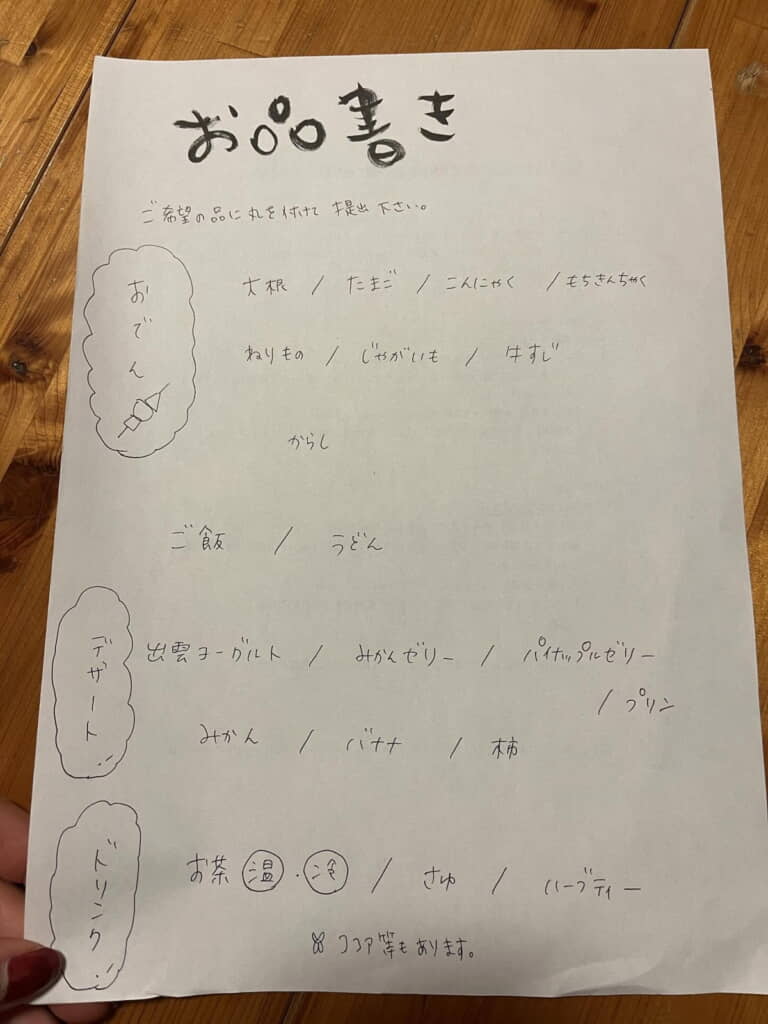 お品書き
ご希望の品に丸を付けて 提出下さい。
おでん
大根 / たまご / こんにゃく / もちきんちゃく
ねりもの / じゃがいも / 牛すじ
からし
ご飯 / うどん
デザート
出雲ヨーグルト / みかんゼリー / パイナップルゼリー
/ プリン
みかん / バナナ / 柿
ドリンク
お茶 温・冷 / さゆ / ハーブティー
※ ココア等もあります。